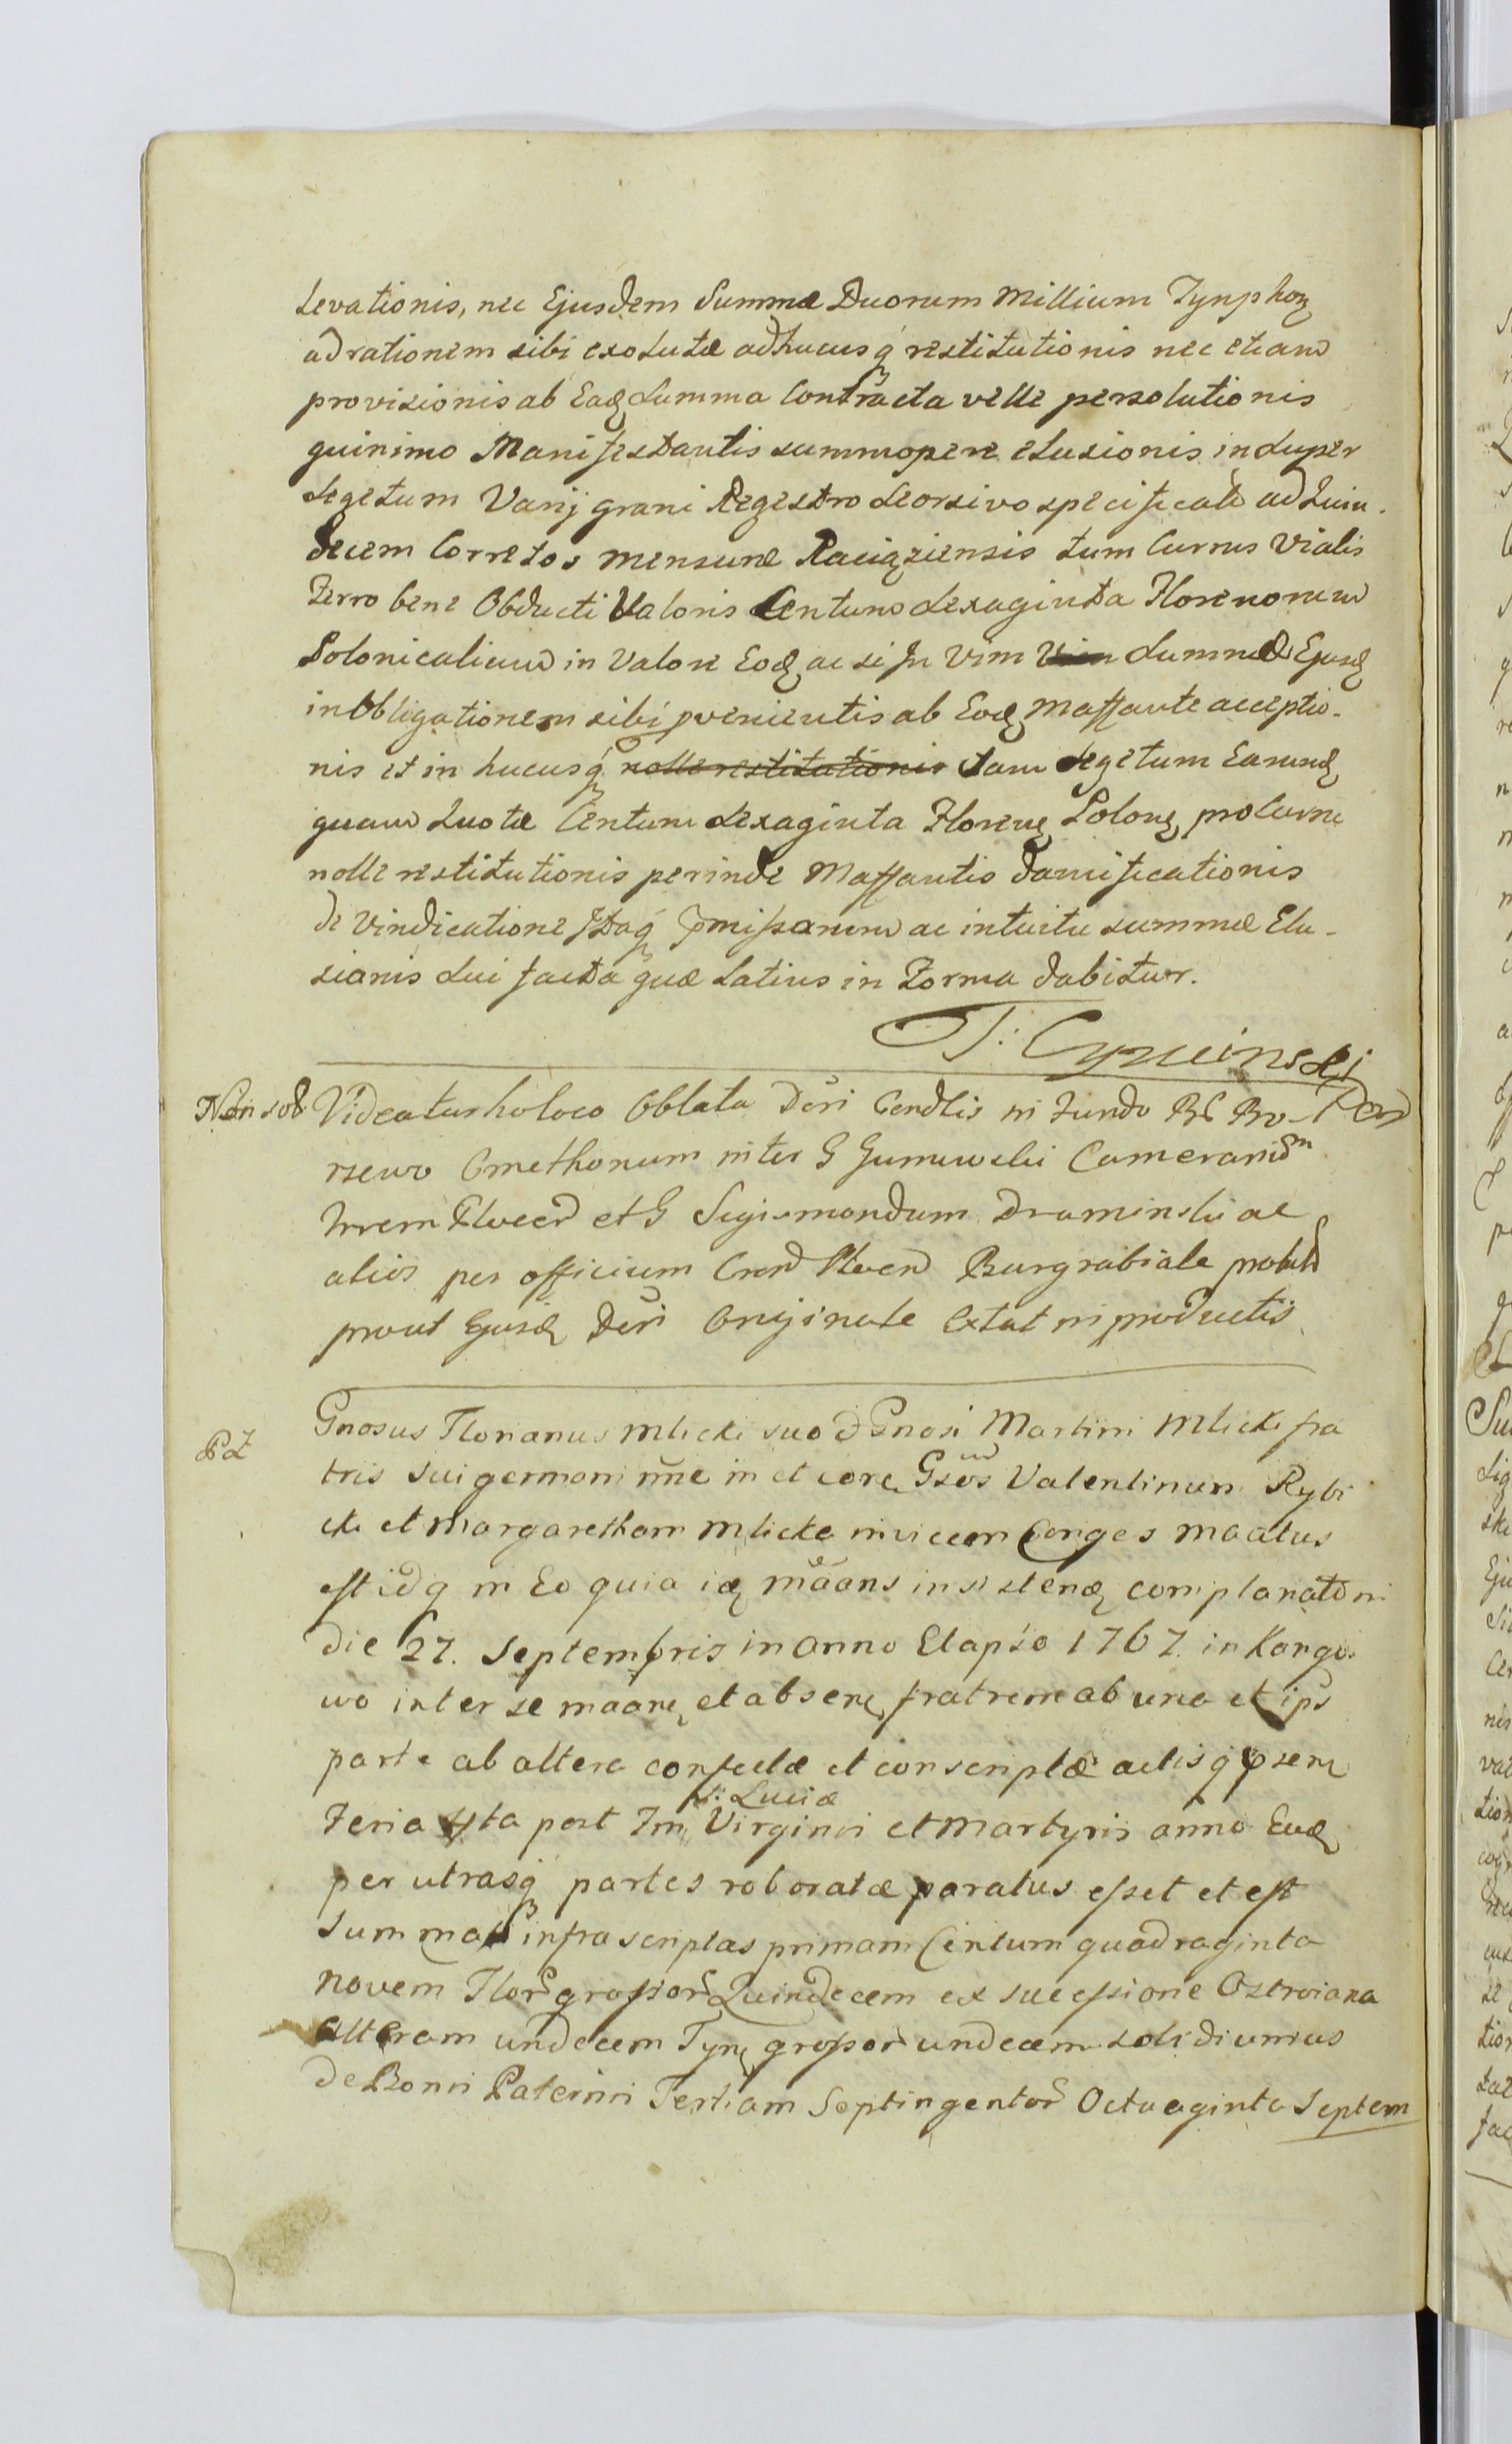 Levationis, nec Ejusdem Summæ Duorum Millium Tynphoꝝ
ad rationem sibi exolutæ adhucusq́ restitutionis nec etiam
provisionis ab Eadꝫ Summa Contracta velle persolutionis
quinimo Manifestantis summopere elusionis insuper
Segetum Varij grani Regestro Seorsivo specificato ad Quin-
decem Corretos mensuræ Raciąziensis tum Currus Vialis
Ferro bene Obducti Valoris Centum Sexaginta Florenorum
Polonicalium in Valore Eodꝫ ac si In Vim Summæ Ejusdꝫ
in Obligationem sibi pvenientis ab Eodꝫ Maffante acceptio-
nis et in hucusq́ nolle restitutionis tam Segetum Earundꝫ
quam Quotæ Centum Sexaginta Florenꝫ Polonꝫ pro Curru
nolle restitutionis perinde Maffantis damificationis
de Vindicatione Itaq́ pmissorum ac intuitu summæ Elu-
sionis Sui facta quæ Latius in Forma dabitur.
T: Cyrcinski
Videatur hoc loco Oblata Dēri Condlis in Fundo
rzewo Cmethonum inter G Gumowski Camerarium
et G Sigismondum Draminski ac
alios per officium Burgrabiale
prout Ejusdꝫ Dēri Originale Extat in productis
PZ
Gnosus Florianus Mlicki suo et Gnosi Martini Mlicki fra
tris sui germani nn̄e in et corꝫ Gsos Valentinum Rybi
cki et Margaretham Mlicka invicem Conges maatus
est idq in Eo quia idꝫ māans insistenꝫ complanatōni
die 27. Septembris in anno Elapso 1767. in Kango
wo inter se maanꝫ et absenꝫ fratrem ab una et ips
parte ab altera confectæ et conscriptæ actisq psenꝫ
Feria 4ta post Fm S: Luciæ Virginis et Martyris anno Eodꝫ
per utrasq́ partes roboratæ paratus esset et est
Summas infrascriptas primam Centum quadraginta
novem Flor grossor Quindecem ex successione Ostroviana
alteram undecem Tynꝫ grossor undecem solidi unius
de Bonis Paternis Tertiam Septingentor Octuaginta Septem